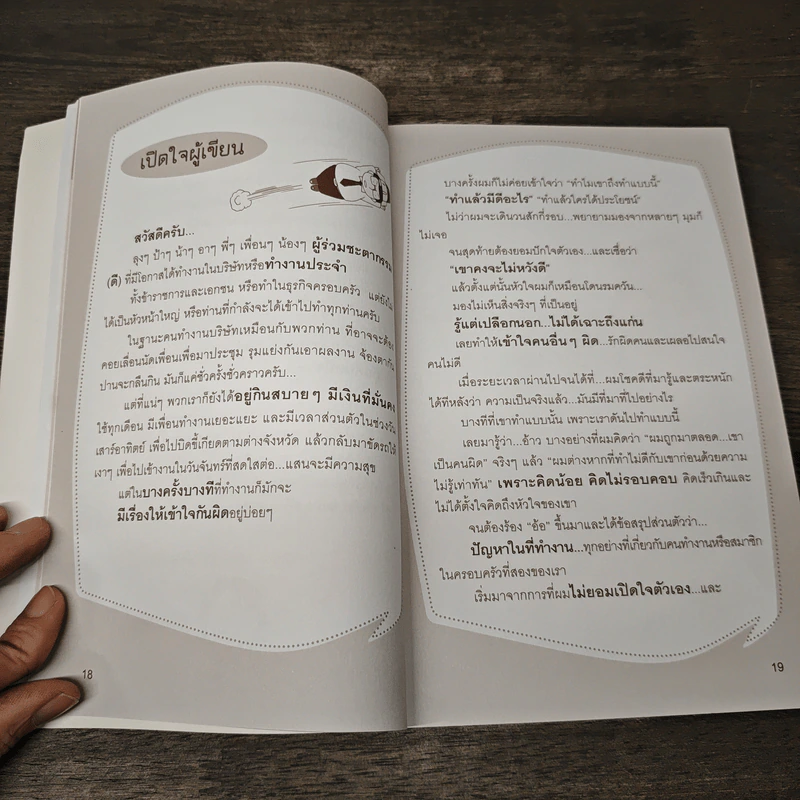 เปิดใจผู้เขียน
สวัสดีครับ...
ลุงๆ ป้าๆ น้าๆ อาๆ พี่ๆ เพื่อนๆ น้องๆ ผู้ร่วมชะตากรรม
(ดี) ที่มีโอกาสได้ทำงานในบริษัทหรือทำงานประจำ
ทั้งข้าราชการและเอกชน หรือทำในธุรกิจครอบครัว แต่ยังไม่
ได้เป็นหัวหน้าใหญ่ หรือท่านที่กำลังจะได้เข้าไปทำทุกท่านครับ
ในฐานะคนทำงานบริษัทเหมือนกับพวกท่าน ที่อาจจะต้อง
คอยเลื่อนนัดเพื่อนเพื่อมาประชุม รุมแย่งกันเอาผลงาน จ้องตากัน
ปานจะกลืนกิน มันก็แค่ชั่วครั้งชั่วคราวครับ...
แต่ที่แน่ๆ พวกเราก็ยังได้อยู่กินสบายๆ มีเงินที่มั่นคง
ใช้ทุกเดือน มีเพื่อนทำงานเยอะแยะ และมีเวลาส่วนตัวในช่วงวัน
เสาร์อาทิตย์ เพื่อไปบิดขี้เกียดตามต่างจังหวัด แล้วกลับมาขัดรถให้
เงาๆ เพื่อไปเข้างานในวันจันทร์ที่สดใสต่อ...แสนจะมีความสุข
แต่ในบางครั้งบางทีที่ทำงานก็มักจะ
มีเรื่องให้เข้าใจกันผิดอยู่บ่อยๆ
18
บางครั้งผมก็ไม่ค่อยเข้าใจว่า "ทำไมเขาถึงทำแบบนี้"
"ทำแล้วมีดีอะไร" "ทำแล้วใครได้ประโยชน์"
ไม่ว่าผมจะเดินวนสักกี่รอบ...พยายามมองจากหลายๆ มุมก็
ไม่เจอ
จนสุดท้ายต้องยอมปักใจตัวเอง...และเชื่อว่า
"เขาคงจะไม่หวังดี"
แล้วตั้งแต่นั้นหัวใจผมก็เหมือนโดนรมควัน...
มองไม่เห็นสิ่งจริงๆ ที่เป็นอยู่
รู้แต่เปลือกนอก...ไม่ได้เฉาะถึงแก่น
เลยทำให้เข้าใจคนอื่นๆ ผิด...รักผิดคนและเผลอไปสนใจ
คนไม่ดี
เมื่อระยะเวลาผ่านไปจนได้ที่...ผมโชคดีที่มารู้และตระหนัก
ได้ทีหลังว่า ความเป็นจริงแล้ว...มันมีที่มาที่ไปอย่างไร
บางทีที่เขาทำแบบนั้น เพราะเราดันไปทำแบบนี้
เลยมารู้ว่า...อ้าว บางอย่างที่ผมคิดว่า "ผมถูกมาตลอด...เขา
เป็นคนผิด" จริงๆ แล้ว "ผมต่างหากที่ทำไม่ดีกับเขาก่อนด้วยความ
ไม่รู้เท่าทัน" เพราะคิดน้อย คิดไม่รอบคอบ คิดเร็วเกินและ
ไม่ได้ตั้งใจคิดถึงหัวใจของเขา
จนต้องร้อง "อ้อ" ขึ้นมาและได้ข้อสรุปส่วนตัวว่า...
ปัญหาในที่ทำงาน...ทุกอย่างที่เกี่ยวกับคนทำงานหรือสมาชิก
ในครอบครัวที่สองของเรา
เริ่มมาจากการที่ผมไม่ยอมเปิดใจตัวเอง...และ
19